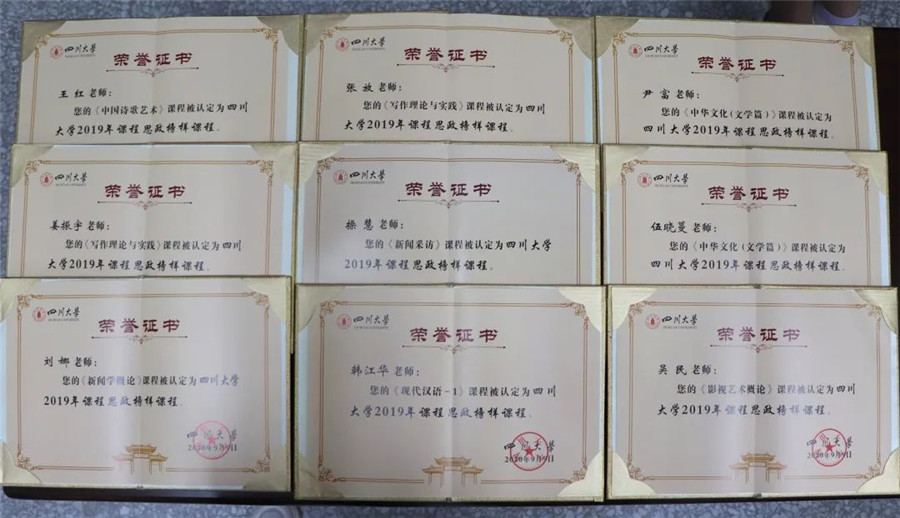 四川大学
SICHUAN UNIVERSITY
荣誉证书
王红老师：
您的《中国诗歌艺术》课程被认定为四川
大学2019年课程思政榜样课程。
四川大学
SICHUAN UNIVERSITY
荣誉证书
张放老师：
您的《写作理论与实践》课程被认定为四川
大学2019年课程思政榜样课程。
四川大学
SICHUAN UNIVERSITY
荣誉证书
尹富老师：
您的《中华文化(文学篇)》课程被认定为
四川大学2019年课程思政榜样课程。
四川大学
SICHUAN UNIVERSITY
荣誉证书
姜振宇老师：
您的《写作理论与实践》课程被认定为四川
大学2019年课程思政榜样课程。
四川大学
SICHUAN UNIVERSITY
荣誉证书
操慧老师：
您的《新闻采访》课程被认定为四川大学
2019年课程思政榜样课程。
四川大学
SICHUAN UNIVERSITY
荣誉证书
伍晓蔓老师：
您的《中华文化(文学篇)》课程被认定为
四川大学2019年课程思政榜样课程。
四川大学
SICHUAN UNIVERSITY
荣誉证书
刘娜老师：
您的《新闻学概论》课程被认定为四川大学
2019年课程思政榜样课程。
四川大学
2020年9月9日
四川大学
SICHUAN UNIVERSITY
荣誉证书
韩江华老师：
您的《现代汉语-1》课程被认定为四川
大学2019年课程思政榜样课程。
四川大学
2020年9月9日
四川大学
SICHUAN UNIVERSITY
荣誉证书
吴民老师：
您的《影视艺术概论》课程被认定为四川
大学2019年课程思政榜样课程。
四川大学
2020年9月9日